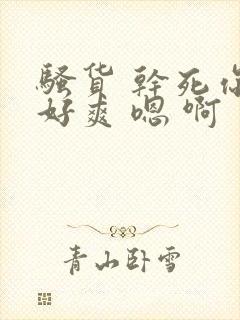 骚货 幹死你
好爽 嗯 啊
青山卧雪